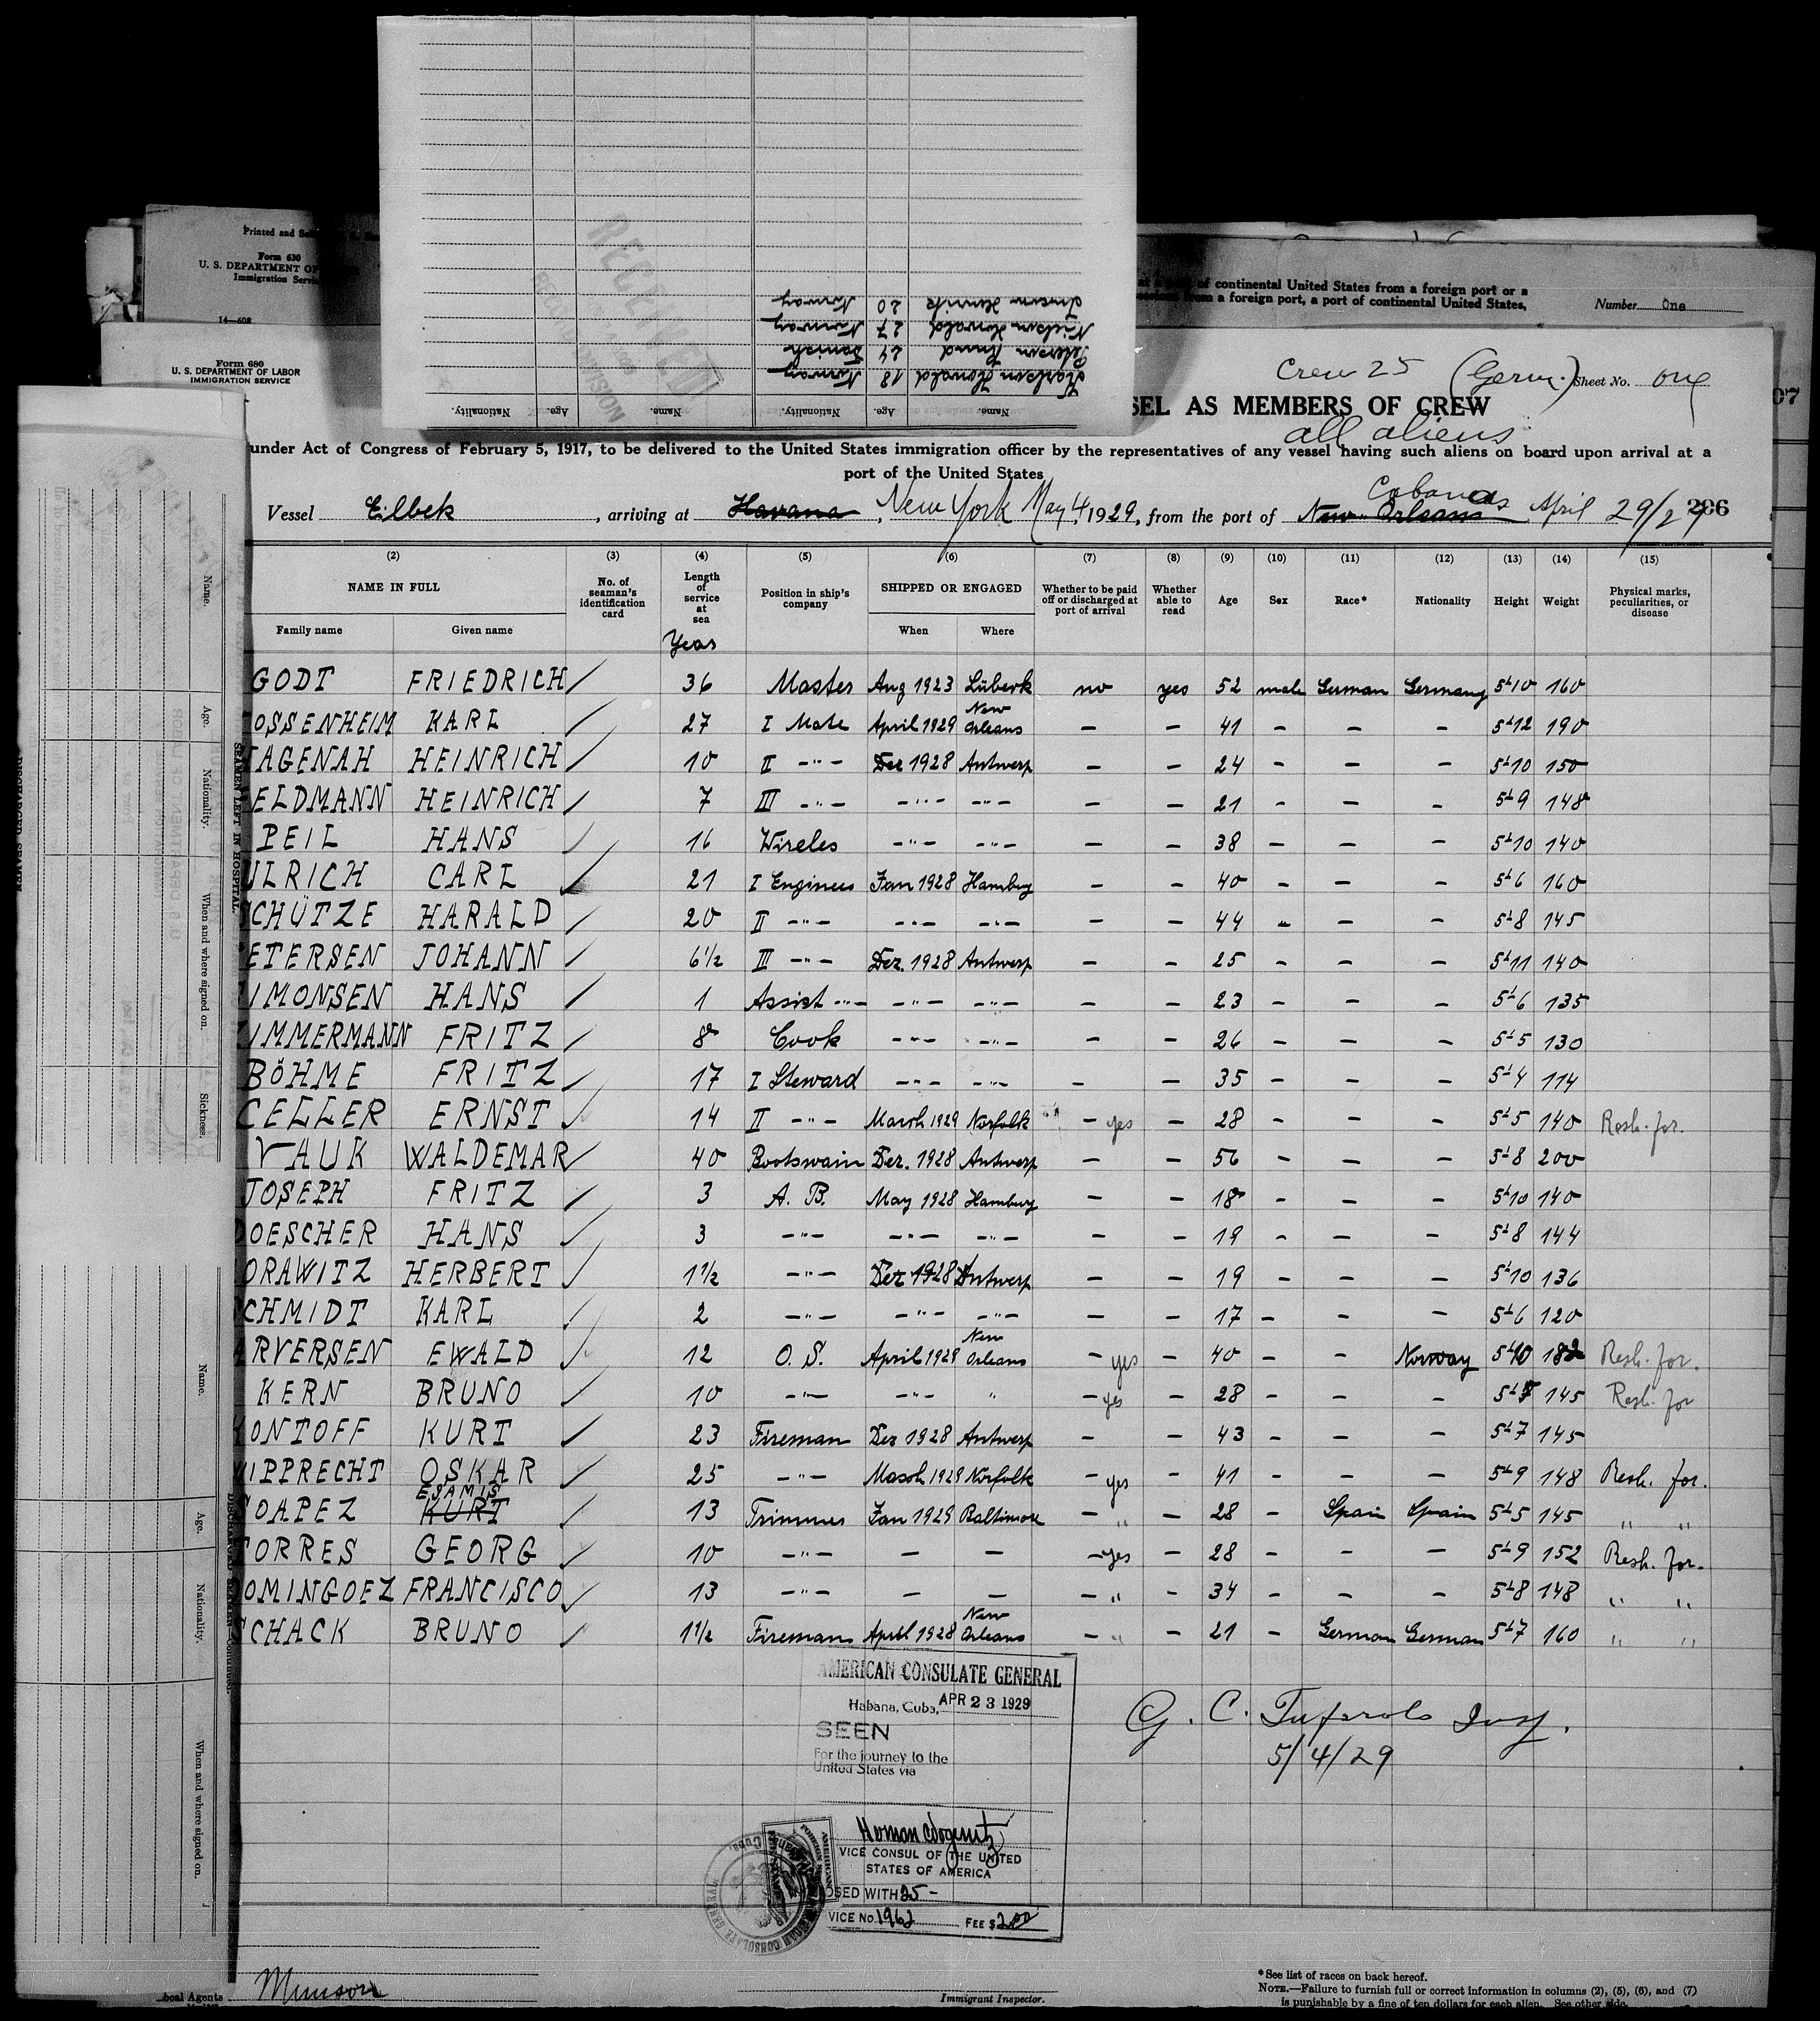 Printed and
Form 630
U. S. DEPARTMENT OF
Immigration Servi
14—608
of continental United States from a foreign port or a
from a foreign port, a port of continental United States,
Number One
RECEIVED
Name. Age. Nationality. Name. Age. Nationality.
Karlson Harvald 18 Norway
Peterson Knud 24 Danish
Nielson Harvald 27 Norway
Iverson Henrik 20 Norway
Form 680
U. S. DEPARTMENT OF LABOR
IMMIGRATION SERVICE
Crew 25 (Germ.) Sheet No. one
SEL AS MEMBERS OF CREW
all aliens
under Act of Congress of February 5, 1917, to be delivered to the United States immigration officer by the representatives of any vessel having such aliens on board upon arrival at a
port of the United States
Vessel Eilbek, arriving at Havana, New York May 4, 1929, from the port of New Orleans Cabanas April 29/29 206
(2) (3) (4) (5) (6) (7) (8) (9) (10) (11) (12) (13) (14) (15)
NAME IN FULL
Family name Given name
No. of seaman's identification card
Length of service at sea
Years
Position in ship's company
SHIPPED OR ENGAGED
When Where
Whether to be paid off or discharged at port of arrival
Whether able to read
Age
Sex
Race*
Nationality
Height
Weight
Physical marks, peculiarities, or disease
GODT FRIEDRICH 36 Master Aug 1923 Lübeck no yes 52 male German Germany 5-10 160
OSSENHEIM KARL 27 I Mate April 1929 New Orleans — — 41 - - - 5-12 190
HAGENAH HEINRICH 10 II -"- Dez 1928 Antwerp — — 24 - - - 5-10 150
ELDMANN HEINRICH 7 III -"- -"- -"- — — 21 - - - 5-9 148
PEIL HANS 16 Wireles -"- -"- — — 38 - - - 5-10 140
ULRICH CARL 21 I Engineer Jan 1928 Hamburg - — 40 - - - 5-6 160
SCHÜTZE HARALD 20 II -"- -"- -"- — — 44 - - - 5-8 145
ETERSEN JOHANN 6 1/2 III -"- Dez. 1928 Antwerp — — 25 - - - 5-11 140
IMONSEN HANS 1 Assist -"- -"- -"- — — 23 - - - 5-6 135
IMMERMANN FRITZ 8 Cook -"- -"- — — 26 - - - 5-5 130
BÖHME FRITZ 17 I Steward -"- -"- — — 35 - - - 5-4 114
CELLER ERNST 14 II -"- March 1929 Norfolk - yes — 28 - - - 5-5 140 Resh. for.
VAUK WALDEMAR 40 Bootswain Dez. 1928 Antwerp — — 56 - - - 5-8 200
JOSEPH FRITZ 3 A. B. May 1928 Hamburg — — 18 - - - 5-10 140
DOESCHER HANS 3 -"- -"- -"- — — 19 - - - 5-8 144
ORAWITZ HERBERT 1 1/2 -"- Dez 1928 Antwerp — — 19 - - - 5-10 136
CHMIDT KARL 2 -"- -"- -"- — — 17 - - - 5-6 120
ARVERSEN EWALD 12 O. S. April 1928 New Orleans - yes — 40 - - Norway 5-10 182 Resh. for.
KERN BRUNO 10 -"- -"- " - yes — 28 - - - 5-7 145 Resh. for
ONTOFF KURT 23 Fireman Dez 1928 Antwerp - — 43 - - - 5-7 145
IPPRECHT OSKAR 25 -"- March 1929 Norfolk - yes — 41 - - - 5-9 148 Resh. for.
SOAPEZ KURT ESAMIS 13 Trimmer Jan 1929 Baltimore - " — 28 - Spain Spain 5-5 145 " "
TORRES GEORG 10 -"- — — - yes — 28 - - - 5-9 152 Resh. for.
OMINGOEZ FRANCISCO 13 -"- — — - " — 34 - - - 5-8 148 " "
SCHACK BRUNO 1 1/2 Fireman April 1928 New Orleans - " — 21 - German German 5-7 160 " "
AMERICAN CONSULATE GENERAL
Habana, Cuba, APR 23 1929
SEEN
For the journey to the
United States via
G. C. Insp.
5/4/29
VICE CONSUL OF THE UNITED
STATES OF AMERICA
OSED WITH 25-
VICE No. 1962 FEE $2.00
Munson
ocal Agents
Immigrant Inspector.
*See list of races on back hereof.
NOTE.—Failure to furnish full or correct information in columns (2), (5), (6), and (7)
is punishable by a fine of ten dollars for each alien. See other side.
SEAMEN LEFT IN HOSPITAL
Name. Age. Nationality. When and where signed on. Sickness.
Name. Age. Nationality. When and where signed on.